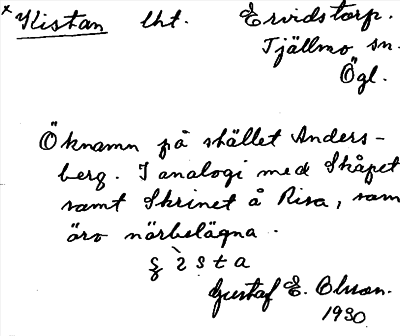 x Kistan lht. Ervidstorp.
Tjällmo sn.
Ögl.
Öknamn på stället Anders-
berg. I analogi med Skåpet
samt Skrinet å Risa, som
äro närbelägna.
Gustaf E. Olsson.
1930